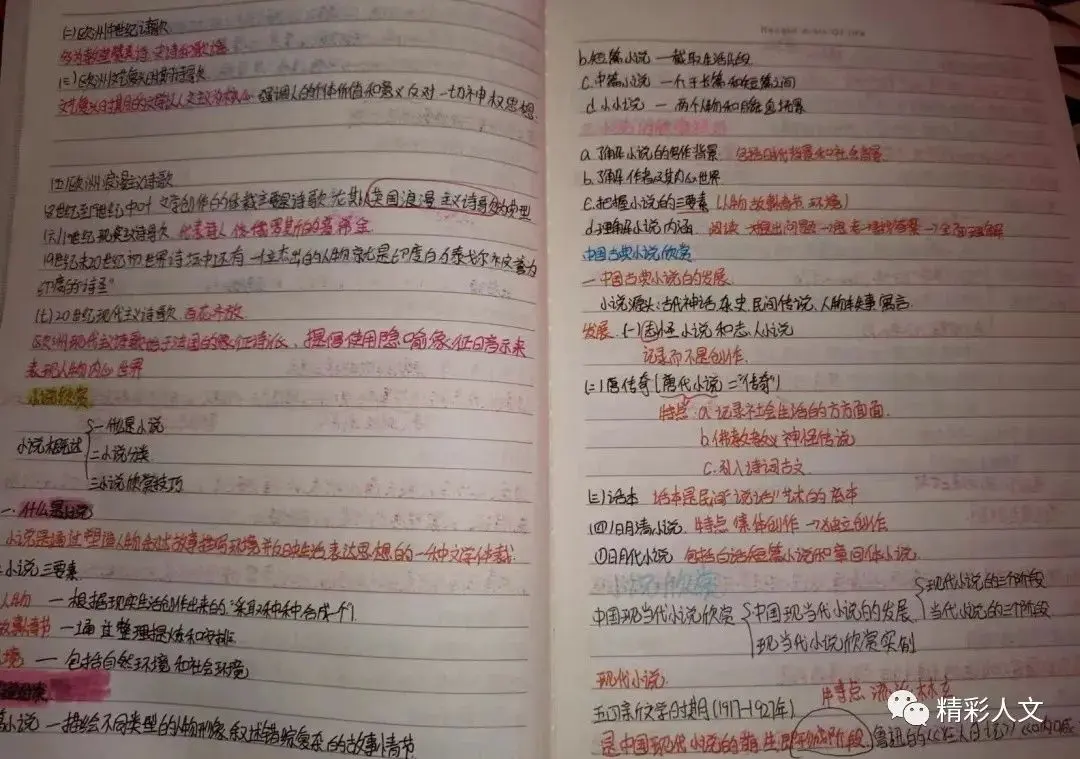 (二)欧洲中世纪诗歌
多为教堂赞美诗 史诗和歌谣
(三)欧洲文艺复兴时期诗歌
文艺复兴时期的文学以人文主义为核心 强调人的个体价值和意义 反对一切神权思想
(五)欧洲浪漫主义诗歌
文学创作的 主要是诗歌 尤其以英国浪漫主义诗歌为典型
(六)19世纪现实诗歌 代表诗人
19世纪末20世纪初世界诗坛中还有一位杰出的人物就是印度的泰戈尔 被誉为
印度的"诗圣"
(七)20世纪现代主义诗歌 百花齐放
欧洲现代主义诗歌始于法国的象征诗派、提倡使用隐喻 象征的暗示来
表现人物内心世界
小说欣赏
小说概述
一什么是小说
二小说分类
三小说欣赏技巧
一、什么是小说
小说是通过塑造人物 叙述故事 描写环境 生活 表达思想的一种文学体裁
小说三要素
人物 一 根据现实生活创作出来的"采取种种合成一个"
故事情节 一 通过整理提炼和安排
环境 — 包括自然环境和社会环境
小说 — 描绘不同类型的人物形象 叙述错综复杂的故事情节
b.短篇小说 — 截取生活片段
c.中篇小说 — 介于长篇和短篇之间
d.小小说 — 两个人物和 场景
a.了解小说的写作背景 包括时代背景和社会背景
b.了解作者及其内心世界
c.把握小说的三要素 (人物 故事情节 环境)
d.理解小说内涵 阅读→提出问题→思考→ →全面理解
中国古典小说欣赏
一中国古典小说的发展
小说源头:古代神话 杂史 民间传说 人物轶事 寓言
发展 (一)志怪小说和志人小说
记录而不是创作
(二)唐传奇(唐代小说="传奇")
特点:a.记录社会生活的方方面面
b.佛教教义 神怪传说
c.引入诗词古文
(三)话本 话本是民间"说话"艺术的底本
(四)明清小说 特点 集体创作→独立创作
①明代小说 包括白话短篇小说和章回体小说
中国现当代小说欣赏
中国现当代小说的发展
现代小说的三个阶段
当代小说的三个阶段
现当代小说欣赏实例
现代小说
五四新文学时期(1917-1927年)
是中国现代小说的萌生即形成阶段 鲁迅的《狂人日记》《呐喊
精彩人文